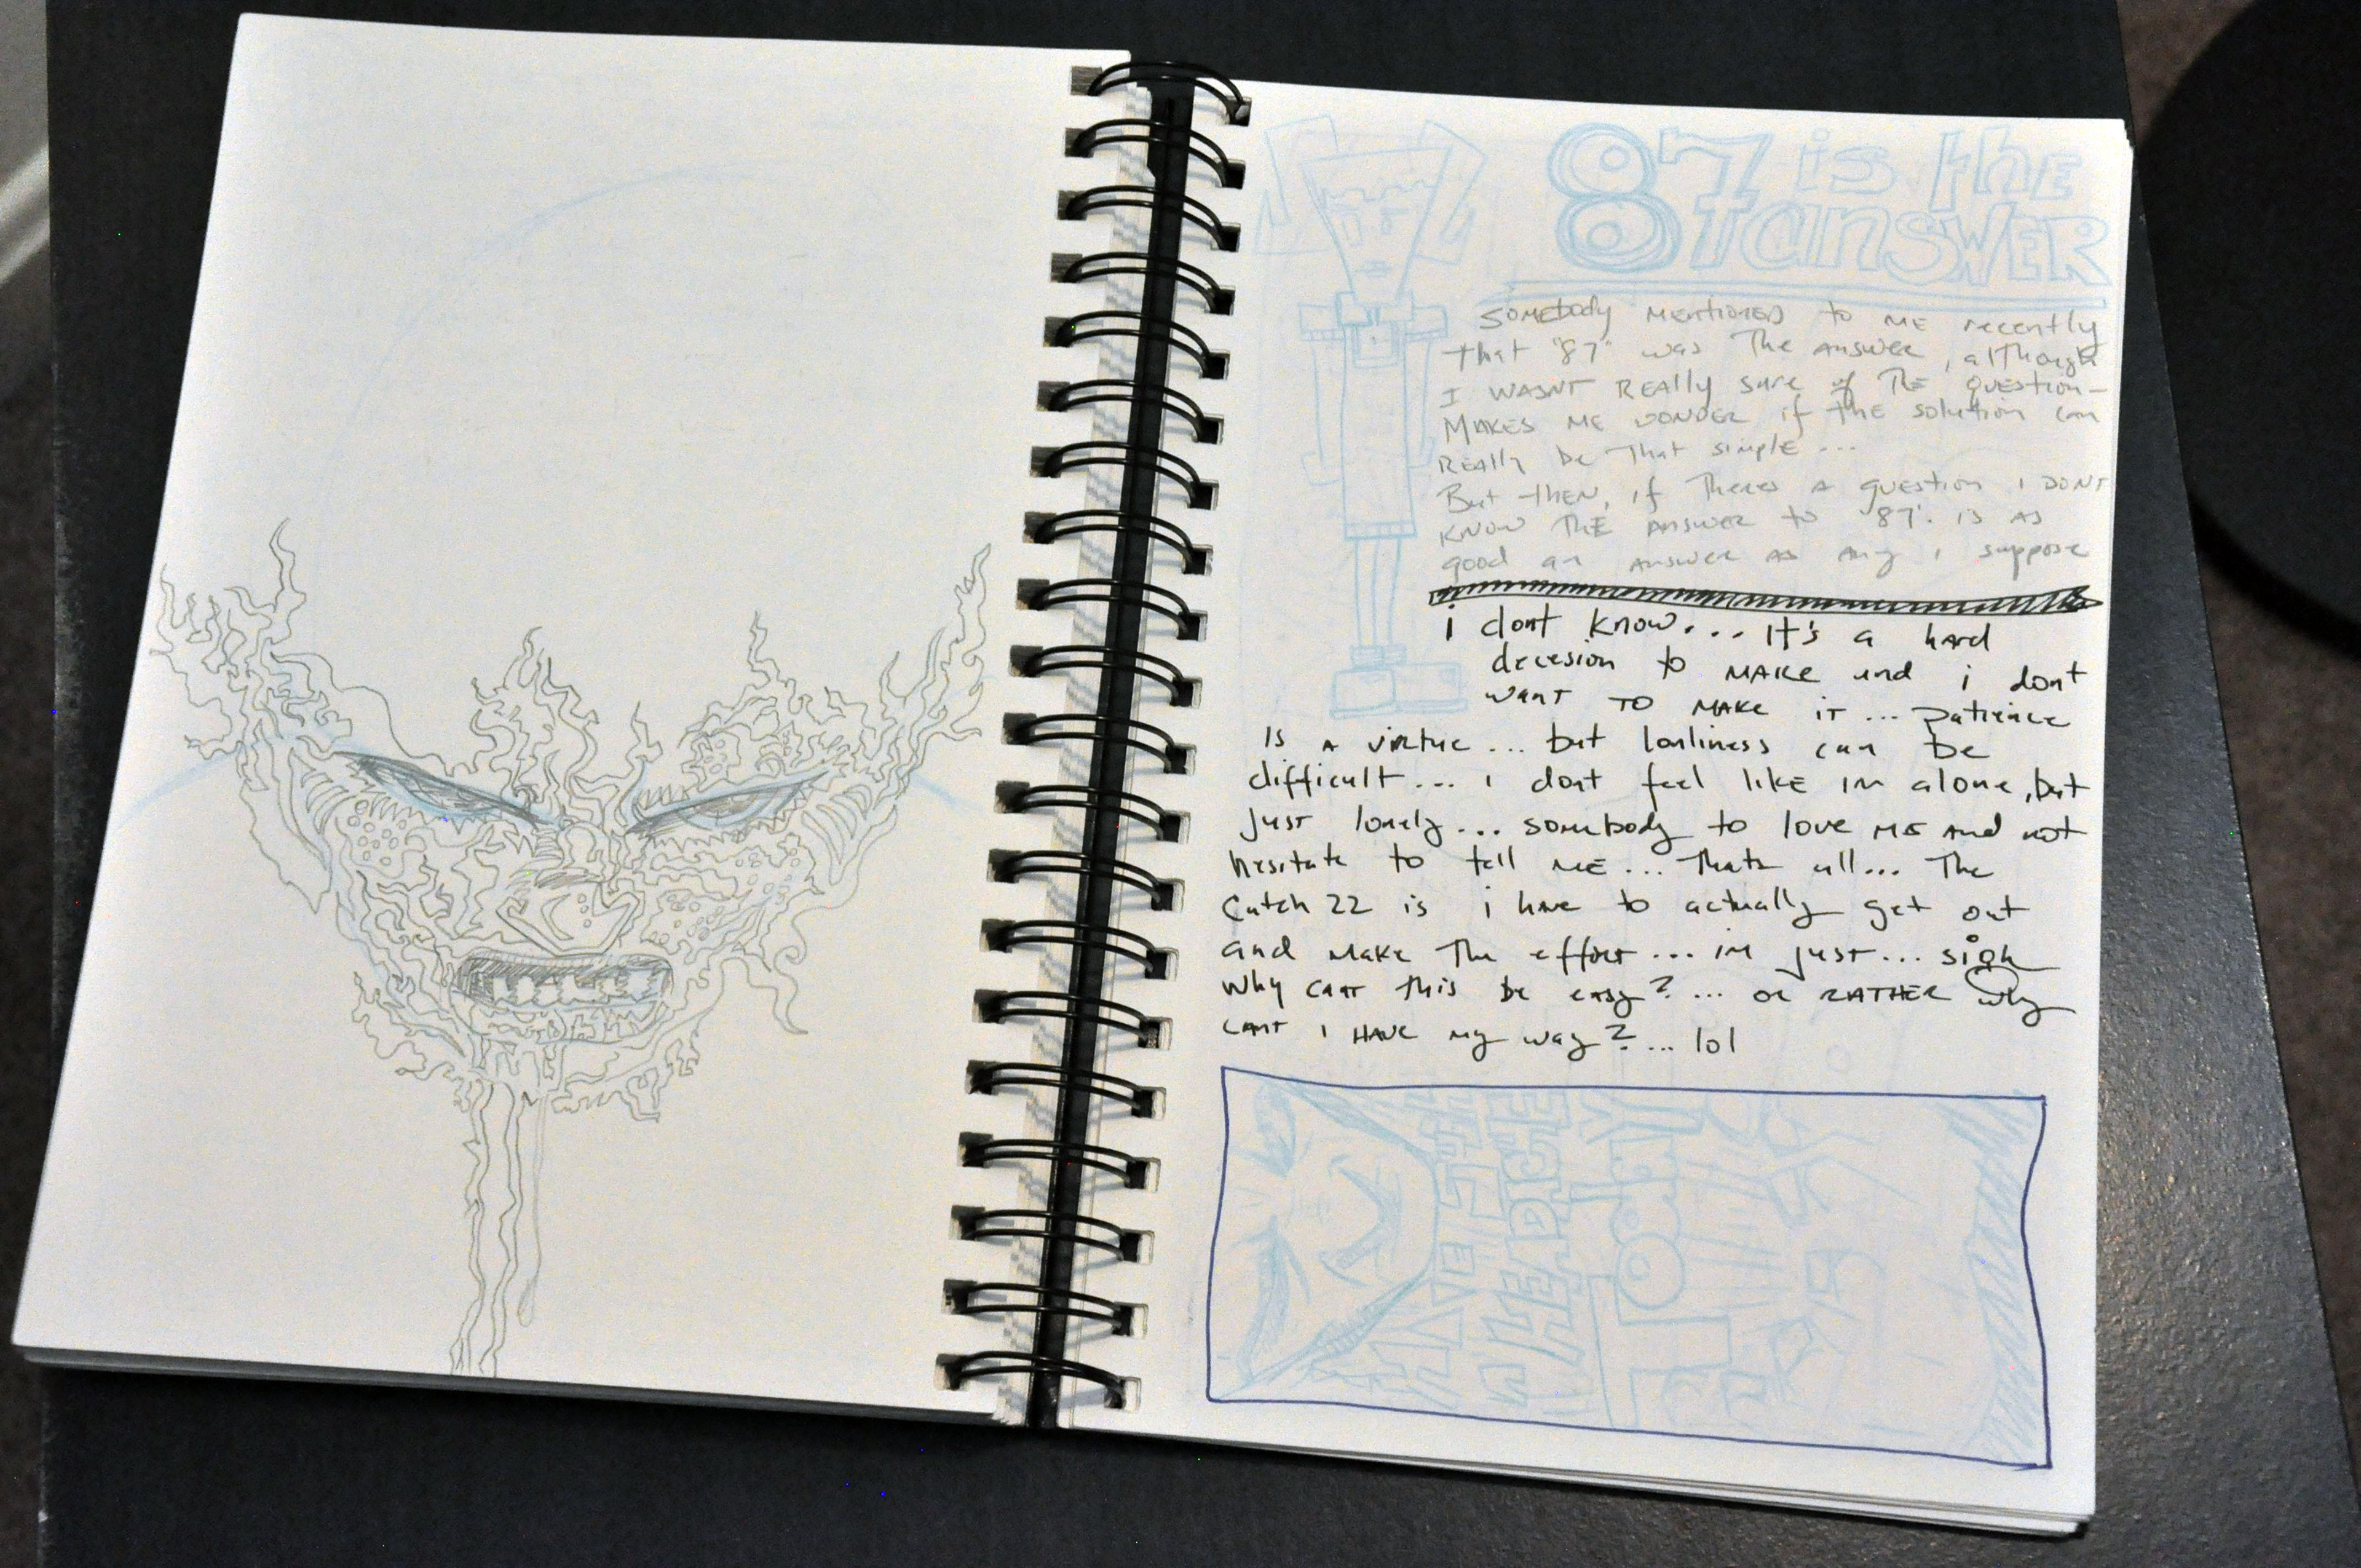 87 is the
answer
Somebody mentioned to me recently
that "87" was the answer, although
I wasnt really sure of the question-
makes me wonder if the solution can
really be that simple...
But then, if theres a question i dont
know the answer to '87' is as
good an answer as any i suppose
i dont know... it's a hard
decesion to make and i dont
want to make it... patience
is a virtue... but lonliness can be
difficult... i dont feel like im alone, but
just lonely... somebody to love me and not
hesitate to tell me... thats all... the
catch 22 is i have to actually get out
and make the effort... im just... sigh
why cant this be easy?... or rather why
cant i have my way?... lol